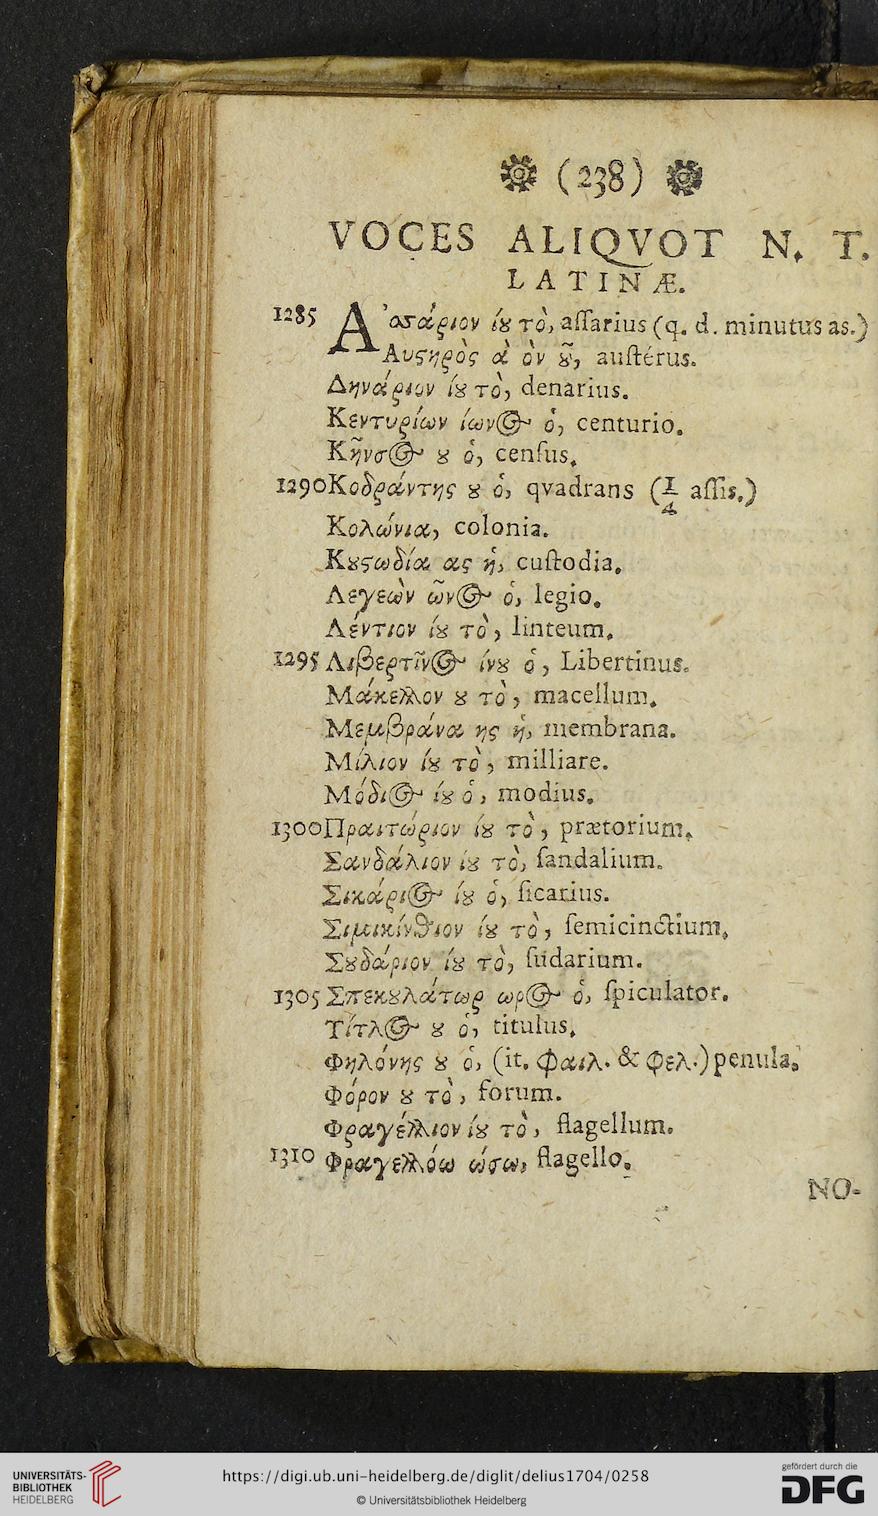 (238)
VOCES ALIQVOT N. T.
LATINÆ.
1285 Ἀσσάριον ίȣ τὸ, aſſarius (q. d. minutus as.)
Αυςηρὸς ὰ ὸν ȣ͂, auſtérus.
Δηνάριον ίȣ τὸ, denarius.
Κεντυρίων ίωνος ὁ, centurio.
Κῆνσος ȣ ὁ, cenſus.
1290 Κοδράντης ȣ ὁ, qvadrans (1/4 aſſis.)
Κολώνια, colonia.
Κȣςωδία ας ἡ, cuſtodia.
Λεγεὼν ῶνος ὁ, legio.
Λέντιον ίȣ τὸ, linteum.
1295 Λιβερτῖνος ίνȣ ὁ, Libertinus.
Μάκελλον ȣ τὸ, macellum.
Μεμβράνα ης ἡ, membrana.
Μίλιον ίȣ τὸ, milliare.
Μόδιος ίȣ ὁ, modius.
1300 Πραιτώριον ίȣ τὸ, prætorium.
Σανδάλιον ίȣ τὸ, ſandalium.
Σικάριος ίȣ ὁ, ſicarius.
Σιμικίνθιον ίȣ τὸ, ſemicinctium.
Σȣδάριον ίȣ τὸ, ſudarium.
1305 Σπεκȣλάτωρ ωρος ὁ, ſpiculator.
Τίτλος ȣ ὁ, titulus.
Φηλόνης ȣ ὁ, (it. φαιλ. & φελ.) penula.
Φόρον ȣ τὸ, forum.
Φραγέλλιον ίȣ τὸ, flagellum.
1310 Φραγελλόω ώσω, flagello.
NO-
UNIVERSITÄTS-
BIBLIOTHEK
HEIDELBERG
https://digi.ub.uni-heidelberg.de/diglit/delius1704/0258
© Universitätsbibliothek Heidelberg
gefördert durch die
DFG